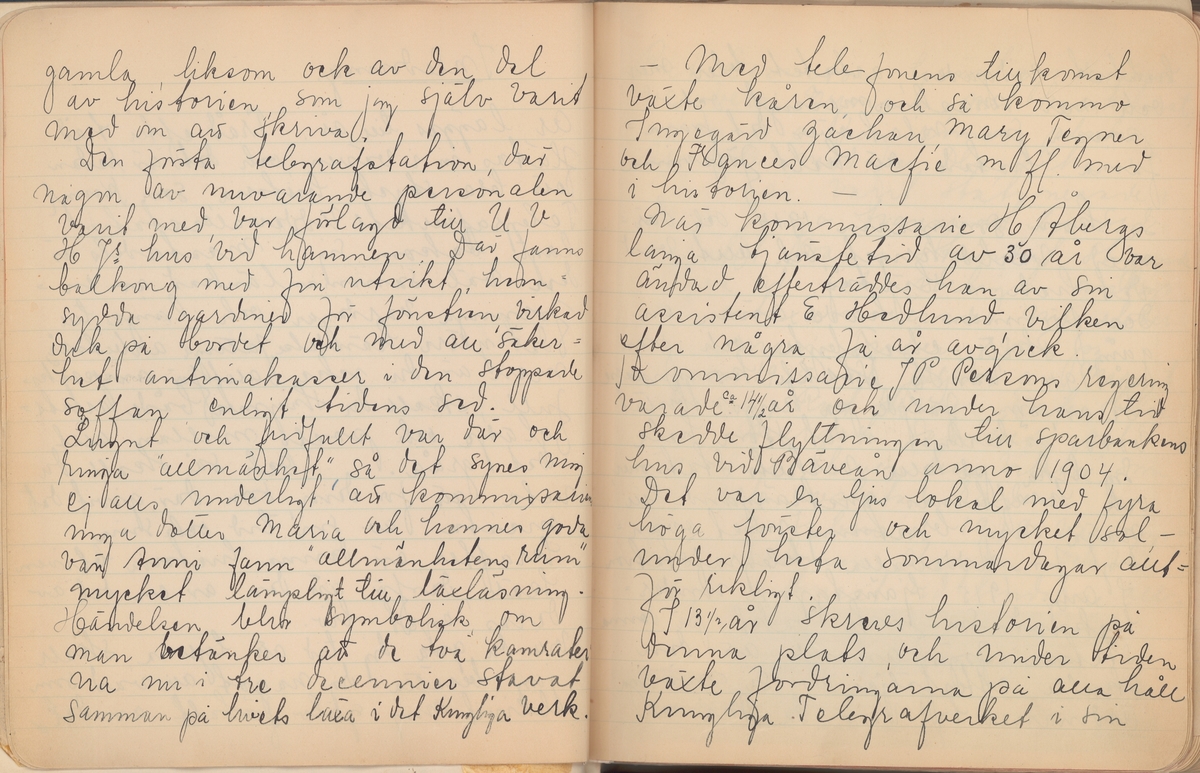 gamla, liksom ock av den del
av historien, som jag själv varit
med om att skriva.
Den första telegrafstation, där
någon av nuvarande personalen
varit med, var förlagd till U V
H J:s hus vid hamnen. Där fanns
balkong med fin utsikt, hem-
sydda gardiner för fönstren, virkad
duk på bordet och med all säker=
het antimakasser i den stoppade
soffan enligt tidens sed.
Lugnt och fridfullt var där och
ringa "allmänhet", så det synes mig
ej alls underligt, att kommissariens
unga dotter Maria och hennes goda
vän Anni fann "allmänhetens rum"
mycket lämpligt till läxläsning.
Händelsen blir symbolisk om
man betänker att de två kamrater
na nu i tre decennier stavat
samman på livets läxa i det Kungliga verk.
— Med telefonens tillkomst
växte kåren, och så kommo
Ingegärd Zachau, Mary Tegner
och Frances Macfie m fl. med
i historien. —
När kommissarie H Åbergs
långa tjänstetid av 30 år var
ändad, efterträddes han av sin
assistent E Hedlund, vilken
efter några få år avgick.
Kommissarie J P Persons regering
varade ca 14½ år och under hans tid
skedde flyttningen till sparbankens
hus vid Bäveån anno 1904.
Det var en ljus lokal med fyra
höga fönster och mycket sol, —
under heta sommardagar allt=
för rikligt.
I 13½ år skrevs historien på
denna plats, och under tiden
växte fordringarna på alla håll
Kungliga Telegrafverket i sin